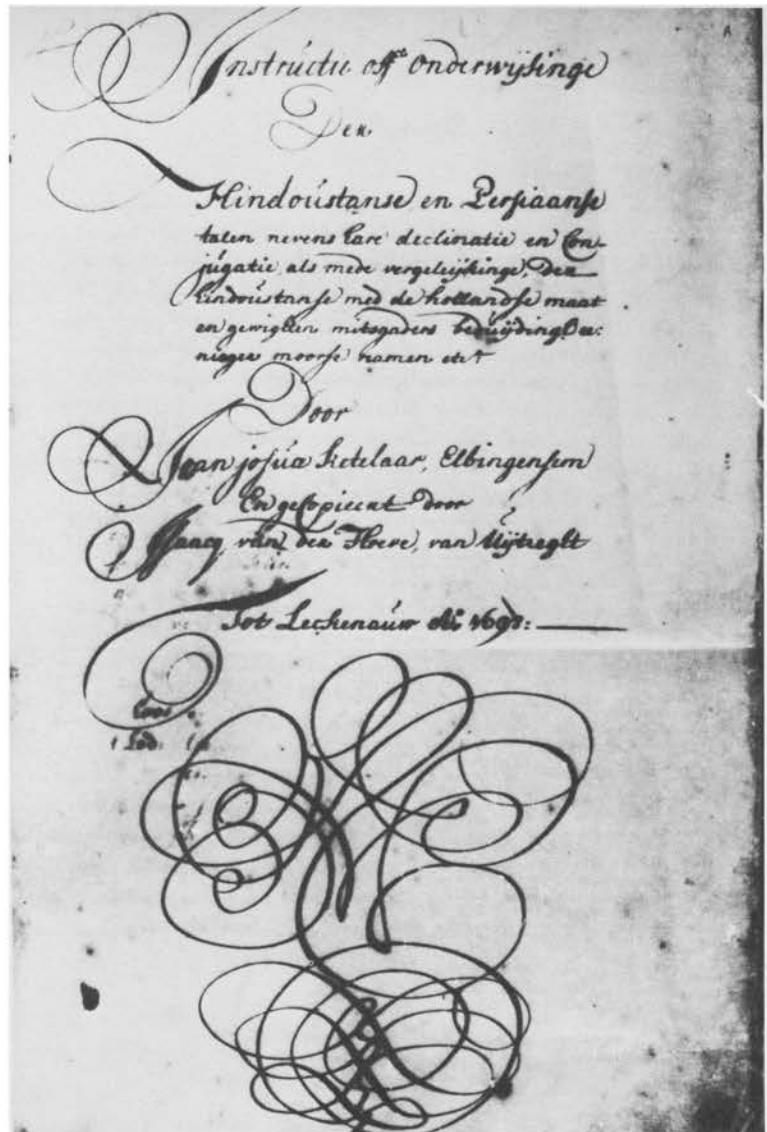 Instructie off Onderwijsinge
Der
Hindoustanse en Persiaanse
talen nevens hare declinatie en Con-
jugatie, als mede vergeleijkinge, der
hindoustanse med de hollandse maat
en gewigten mitsgaders beduijdingh ee-
niger moorse namen etc
Door
Jean josua Ketelaar, Elbingensem
En gecopieert door
Isaacq van der Hoeve, van Uijtreght
Tot Leckenauw Ao 1698: